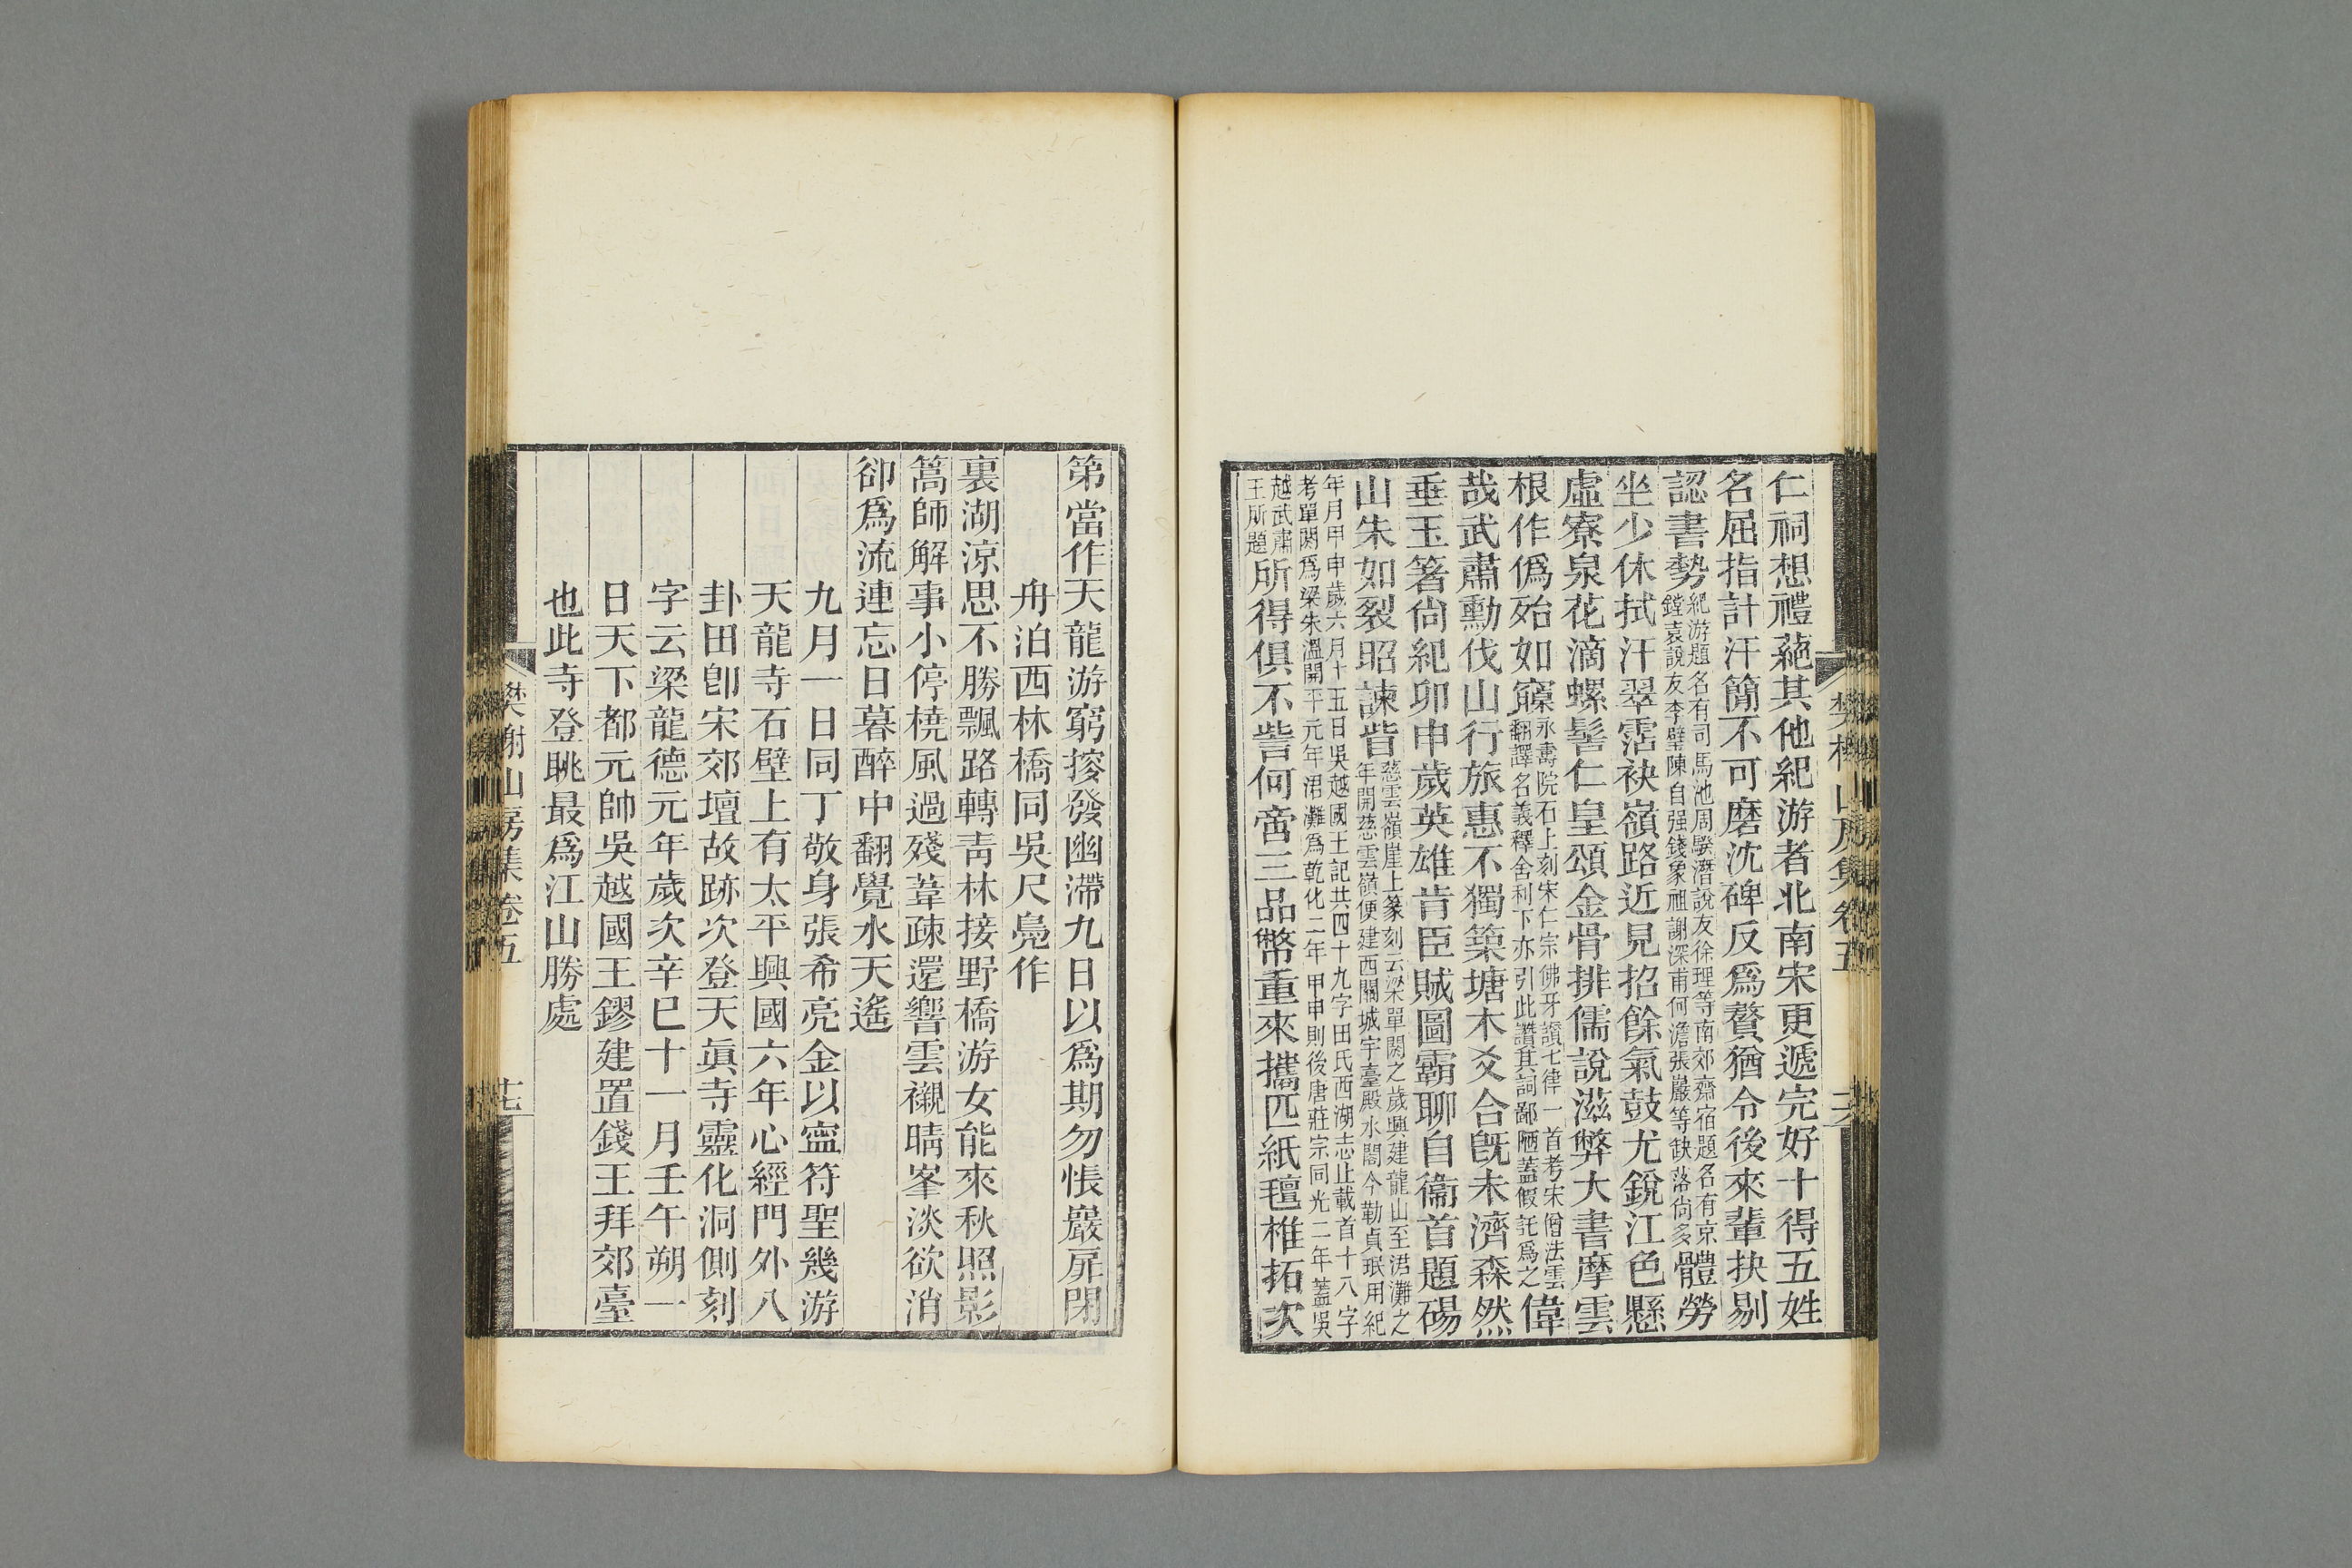 仁祠想禮蕝其他紀游者北南宋更遞完好十得五姓
名屈指計汗簡不可磨沈碑反爲贅猶令後來輩抉剔
認書勢紀游題名有司馬池周騤潛說友徐理等南郊齋宿題名有京鏜袁說友李璧陳自强錢象祖謝深甫何澹張巖等缺落尙多體勞
坐少休拭汗翠霑袂嶺路近見招餘氣鼓尤銳江色懸
虛寮泉花滴螺髻仁皇頌金骨排儒說滋弊大書摩雲
根作僞殆如寱永壽院石上刻宋仁宗佛牙讚七律一首考宋僧法雲翻譯名義釋舍利下亦引此讚其詞鄙陋蓋假託爲之偉
哉武肅勳伐山行旅惠不獨築塘木爻合旣未濟森然
垂玉箸尙紀卯申歲英雄肯臣賊圖霸聊自衞首題碭
山朱如裂昭諫眥慈雲嶺崖上篆刻云梁單閼之歲興建龍山至涒灘之年開慈雲嶺便建西關城宇臺殿水閣今勒貞珉用紀
年月甲申歲六月十五日吳越國王記共四十九字田氏西湖志止載首十八字考單閼爲梁朱溫開平元年涒灘爲乾化二年甲申則後唐莊宗同光二年蓋吳
越武肅王所題所得俱不訾何啻三品幣重來攜匹紙氊椎拓次
樊榭山房集卷五
第當作天龍游窮搜發幽滯九日以爲期勿悵巖扉閉
舟泊西林橋同吳尺鳧作
裏湖涼思不勝飄路轉靑林接野橋游女能來秋照影
篙師解事小停橈風過殘葦疎還響雲襯晴峯淡欲消
卻爲流連忘日暮醉中翻覺水天遙
九月一日同丁敬身張希亮金以寍符聖幾游
天龍寺石壁上有太平興國六年心經門外八
卦田卽宋郊壇故跡次登天眞寺靈化洞側刻
字云梁龍德元年歲次辛巳十一月壬午朔一
日天下都元帥吳越國王鏐建置錢王拜郊臺
也此寺登眺最爲江山勝處
樊榭山房集卷五
十七